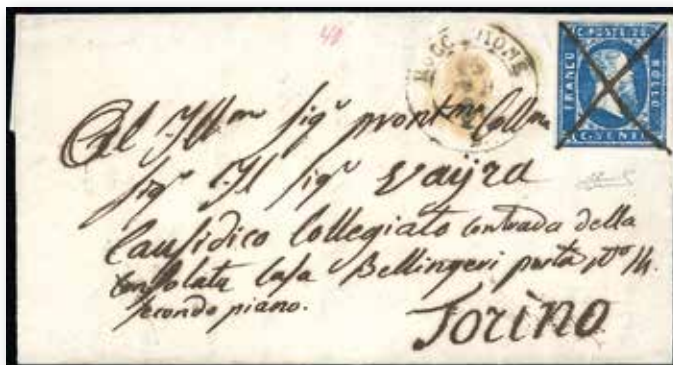 40
C. POSTE 20
FRANCO
BOLLO
C. VENTI
Al Ill.mo Sig.r
Sig.r Il Sig.r Vaÿra
Causidico Collegiato Contrada della
Consolata Casa Bellingeri porta N.o 14.
secondo piano.
Torino